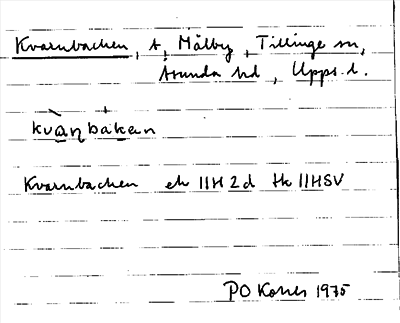 Kvarnbacken, t, Mälby, Tillinge sn,
Åsunda hd, Upps. l.
kvàṇbákan
Kvarnbacken ek 11H 2d tk 11HSV
PO 1975